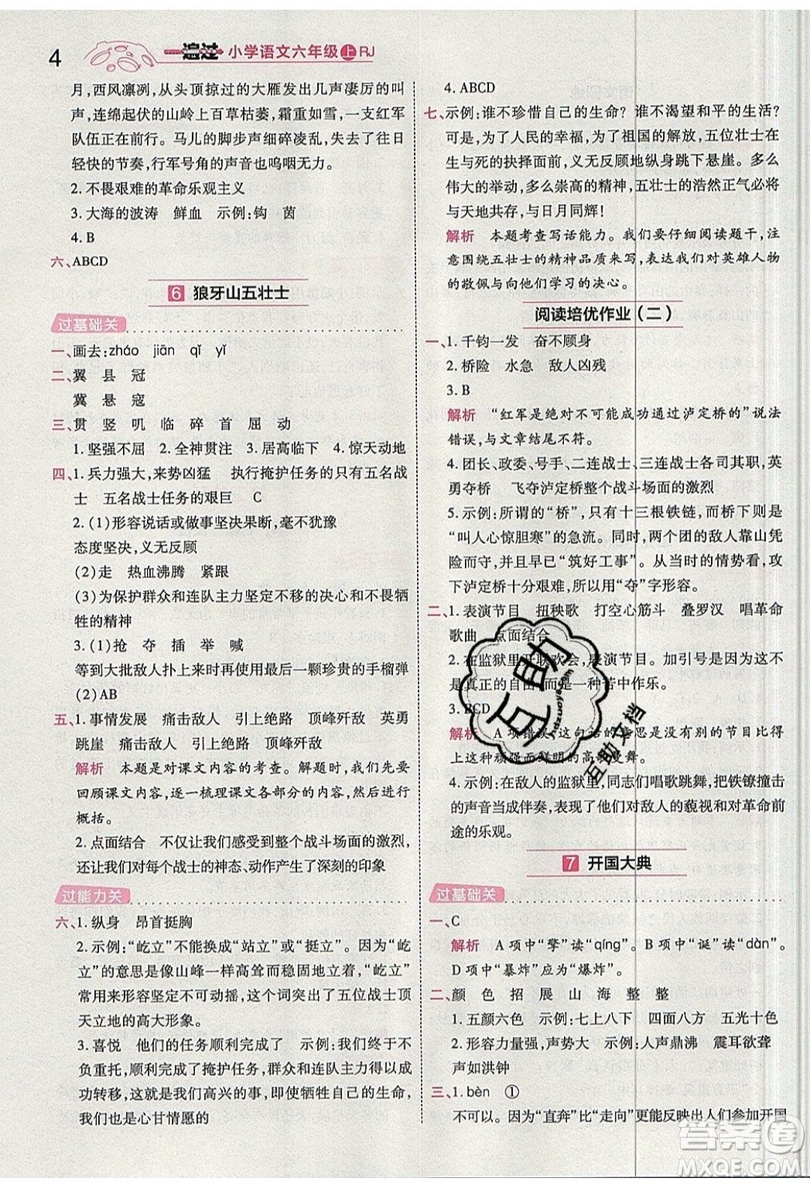 4 一遍过 小学语文六年级 上 RJ
月，西风凛冽，从头顶掠过的大雁发出几声凄厉的叫
声，连绵起伏的山岭上百草枯萎，霜重雾浓，一支红军
队伍正在前行。马儿的脚步声细碎凌乱，踏破了往日
轻快的节奏，行军号角的声音也呜咽无力。
2. 不畏艰难的革命乐观主义
3. 大海的波涛 鲜血 示例：钩 茵
4. B
六、ABCD
6 狼牙山五壮士
过基础关
一、画去：zháo jiān qǐ yǐ
二、翼 县 冠
冀 悬 寇
三、贯 竖 叽 临 碎 首 屈 动
1. 坚强不屈 2. 全神贯注 3. 居高临下 4. 惊天动地
四、1. 兵力强大，来势凶猛 执行掩护任务的只有五名战
士 五名战士任务的艰巨 C
2. (1)形容说话或做事坚决果断，毫不犹豫
态度坚决，义无反顾
(2)走 热血沸腾 紧跟
(3)为保护群众和连队主力坚决的决心和不畏牺
牲的精神
3. (1)抢 夺 插 举 喊
等到大批敌人扑上来时扔出最后一颗珍贵的手榴弹
(2)AB
五、1. 事情发展 痛击敌人 引上绝路 顶峰歼敌 英勇
跳崖 痛击敌人 引上绝路 顶峰歼敌
解析 本题是对课文内容的考查。解题时，我们要
回顾课文内容，逐一梳理课文各部分的内容，然后进行
概括。
2. 点面结合 不仅让我们感受到整个战斗场面的激烈，
还让我们对每个战士的神态、动作产生了深刻的印象
过能力关
六、1. 纵身 昂首挺胸
2. 示例：“屹立”不能换成“站立”或“挺立”。因为“屹
立”的意思是像山峰一样高耸而稳固地立着，“屹立”
常用来形容坚定不可动摇，在这里突出了五位战士顶
天立地的高大形象。
3. 喜悦 他们的任务顺利完成了 示例：他们终于不
负重托，顺利完成了掩护任务，群众和连队主力得以成
功转移，这就是我们高兴的事，即使牺牲自己的生命，
我们也是心甘情愿的
4. ABCD
七、示例：谁不珍惜自己的生命？谁不渴望和平的生活？
可是，为了人民的幸福，为了祖国的解放，五位壮士在
生与死的抉择面前，义无反顾地纵身跳下悬崖。多么
伟大的举动，多么崇高的精神，五壮士的浩然正气必将
与天地共存，与日月同辉！
解析 本题考查写话能力。我们要仔细阅读题干，注
意围绕五壮士的精神品质展开来写，写出我们对英雄人物
的敬佩与向他们学习的决心。
阅读培优作业（二）
一、1. 千钧一发 奋不顾身
2. 桥险 水急 敌人凶残
3. B
解析 “红军是绝对不可能成功通过泸定桥的”说法
错误，与文章结尾不符。
4. 团长、政委、号手、二连战士、三连战士各司其职，英
勇夺桥 飞夺泸定桥整个战斗场面的激烈
5. 示例：所谓的“桥”，只有十三根铁链；而桥下是
“叫人心惊胆寒”的急流。同时，两个团的敌人靠山凭
险而守，早已在桥头“筑好工事”。从当时的情势看，攻
下泸定桥十分艰难，所以用“夺”字更合适。
二、1. 表演节目 扭秧歌 打空心筋斗 叠罗汉 唱革命
歌曲 点面结合
2. 在监狱里开联欢会，表演节目。加引号是因为这不是
真正的自由，而是一种苦中作乐。
3. BCD
解析 A项错误，这句话的意思是没有别的节目比
这种顽强而鲜明的高
4. 示例：在敌人的监狱里，同志们唱歌跳舞，把铁镣撞击
的声音当成伴奏，充分体现了他们对敌人的藐视和对革命前
途的乐观。
7 开国大典
过基础关
一、C
解析 A项中“擎”读“qíng”。B项中“诞”读“dàn”。
D项中“暴炸”应为“爆炸”。
二、颜 色 招 展 山 海 整 整
1. 五颜六色 示例：七上八下 四面八方 五光十色
2. 形容力量强，声势大 示例：人声鼎沸 震耳欲聋
声如洪钟
三、1. bèn ①
不可以。因为“直奔”比“走向”更能反映出人们参加开国
互助
互助文档
答案圈
MXQE.COM